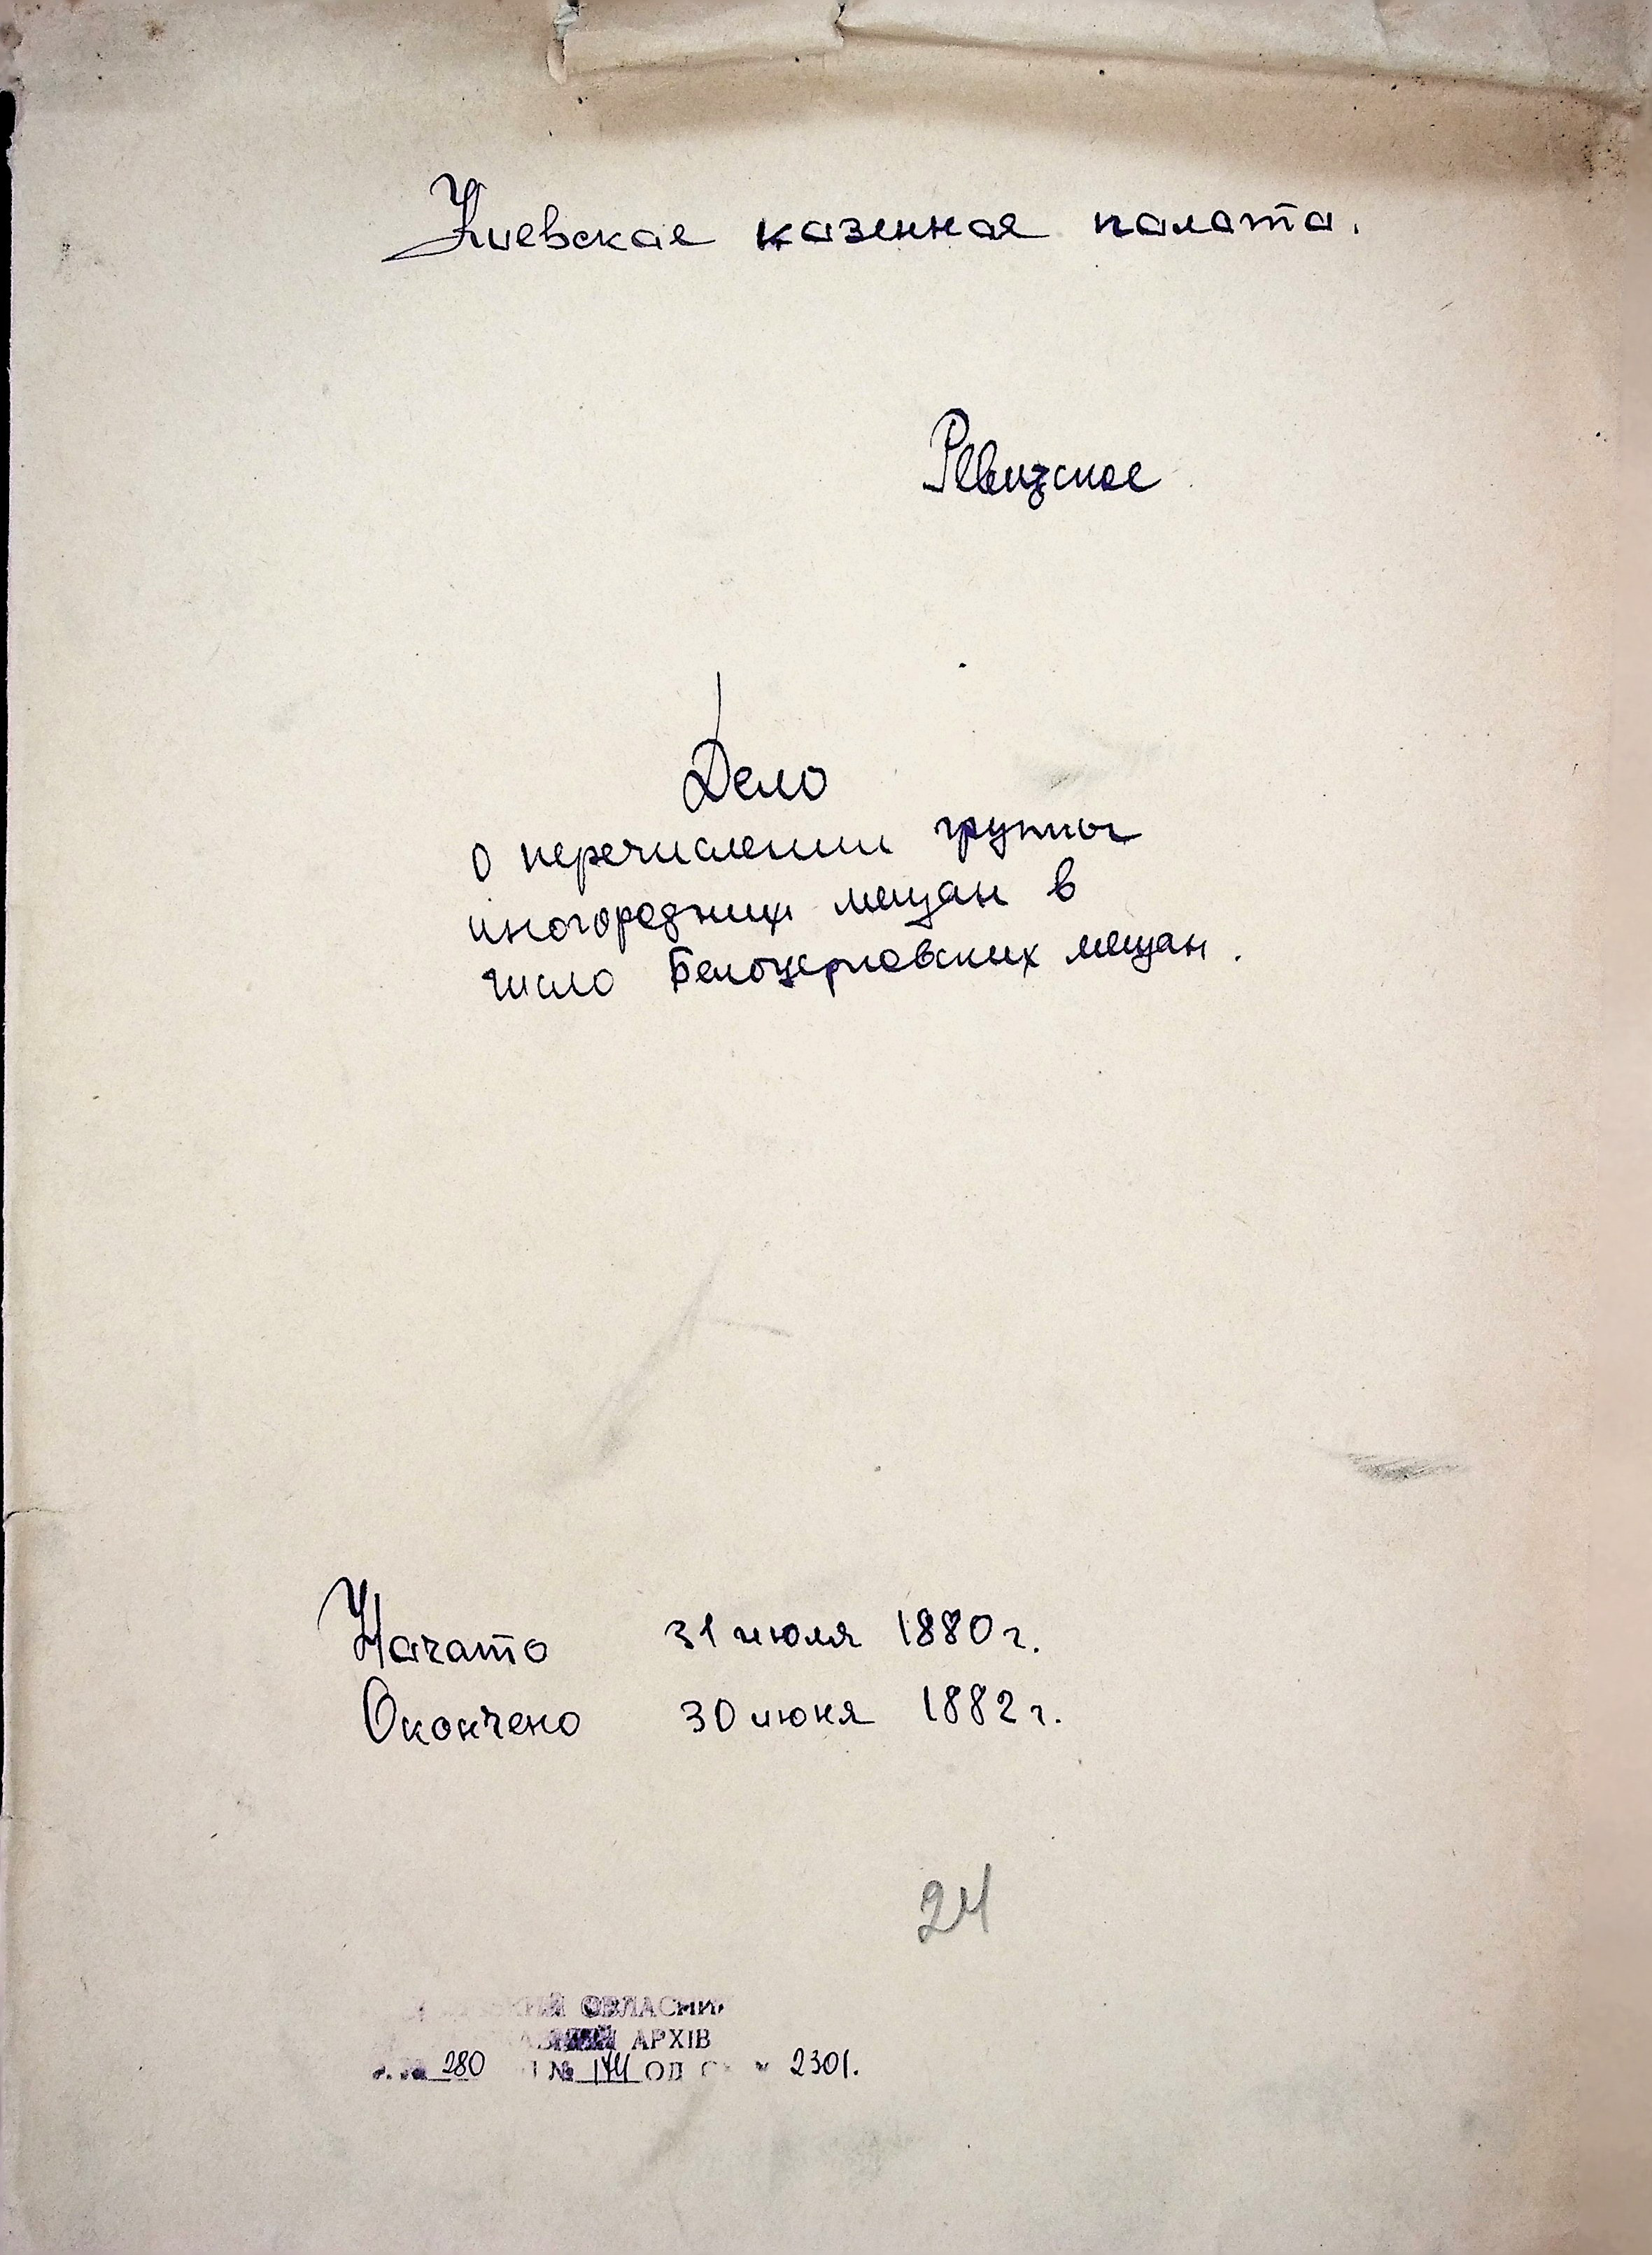 Киевская казенная палата.
Ревизское
Дело
о перечислении группы
иногородних мещан в
число Белоцерковских мещан.
Начато 31 июля 1880 г.
Окончено 30 июня 1882 г.
24
ОБЛАСНИЙ
АРХІВ
280 № 174 ОД 2301.